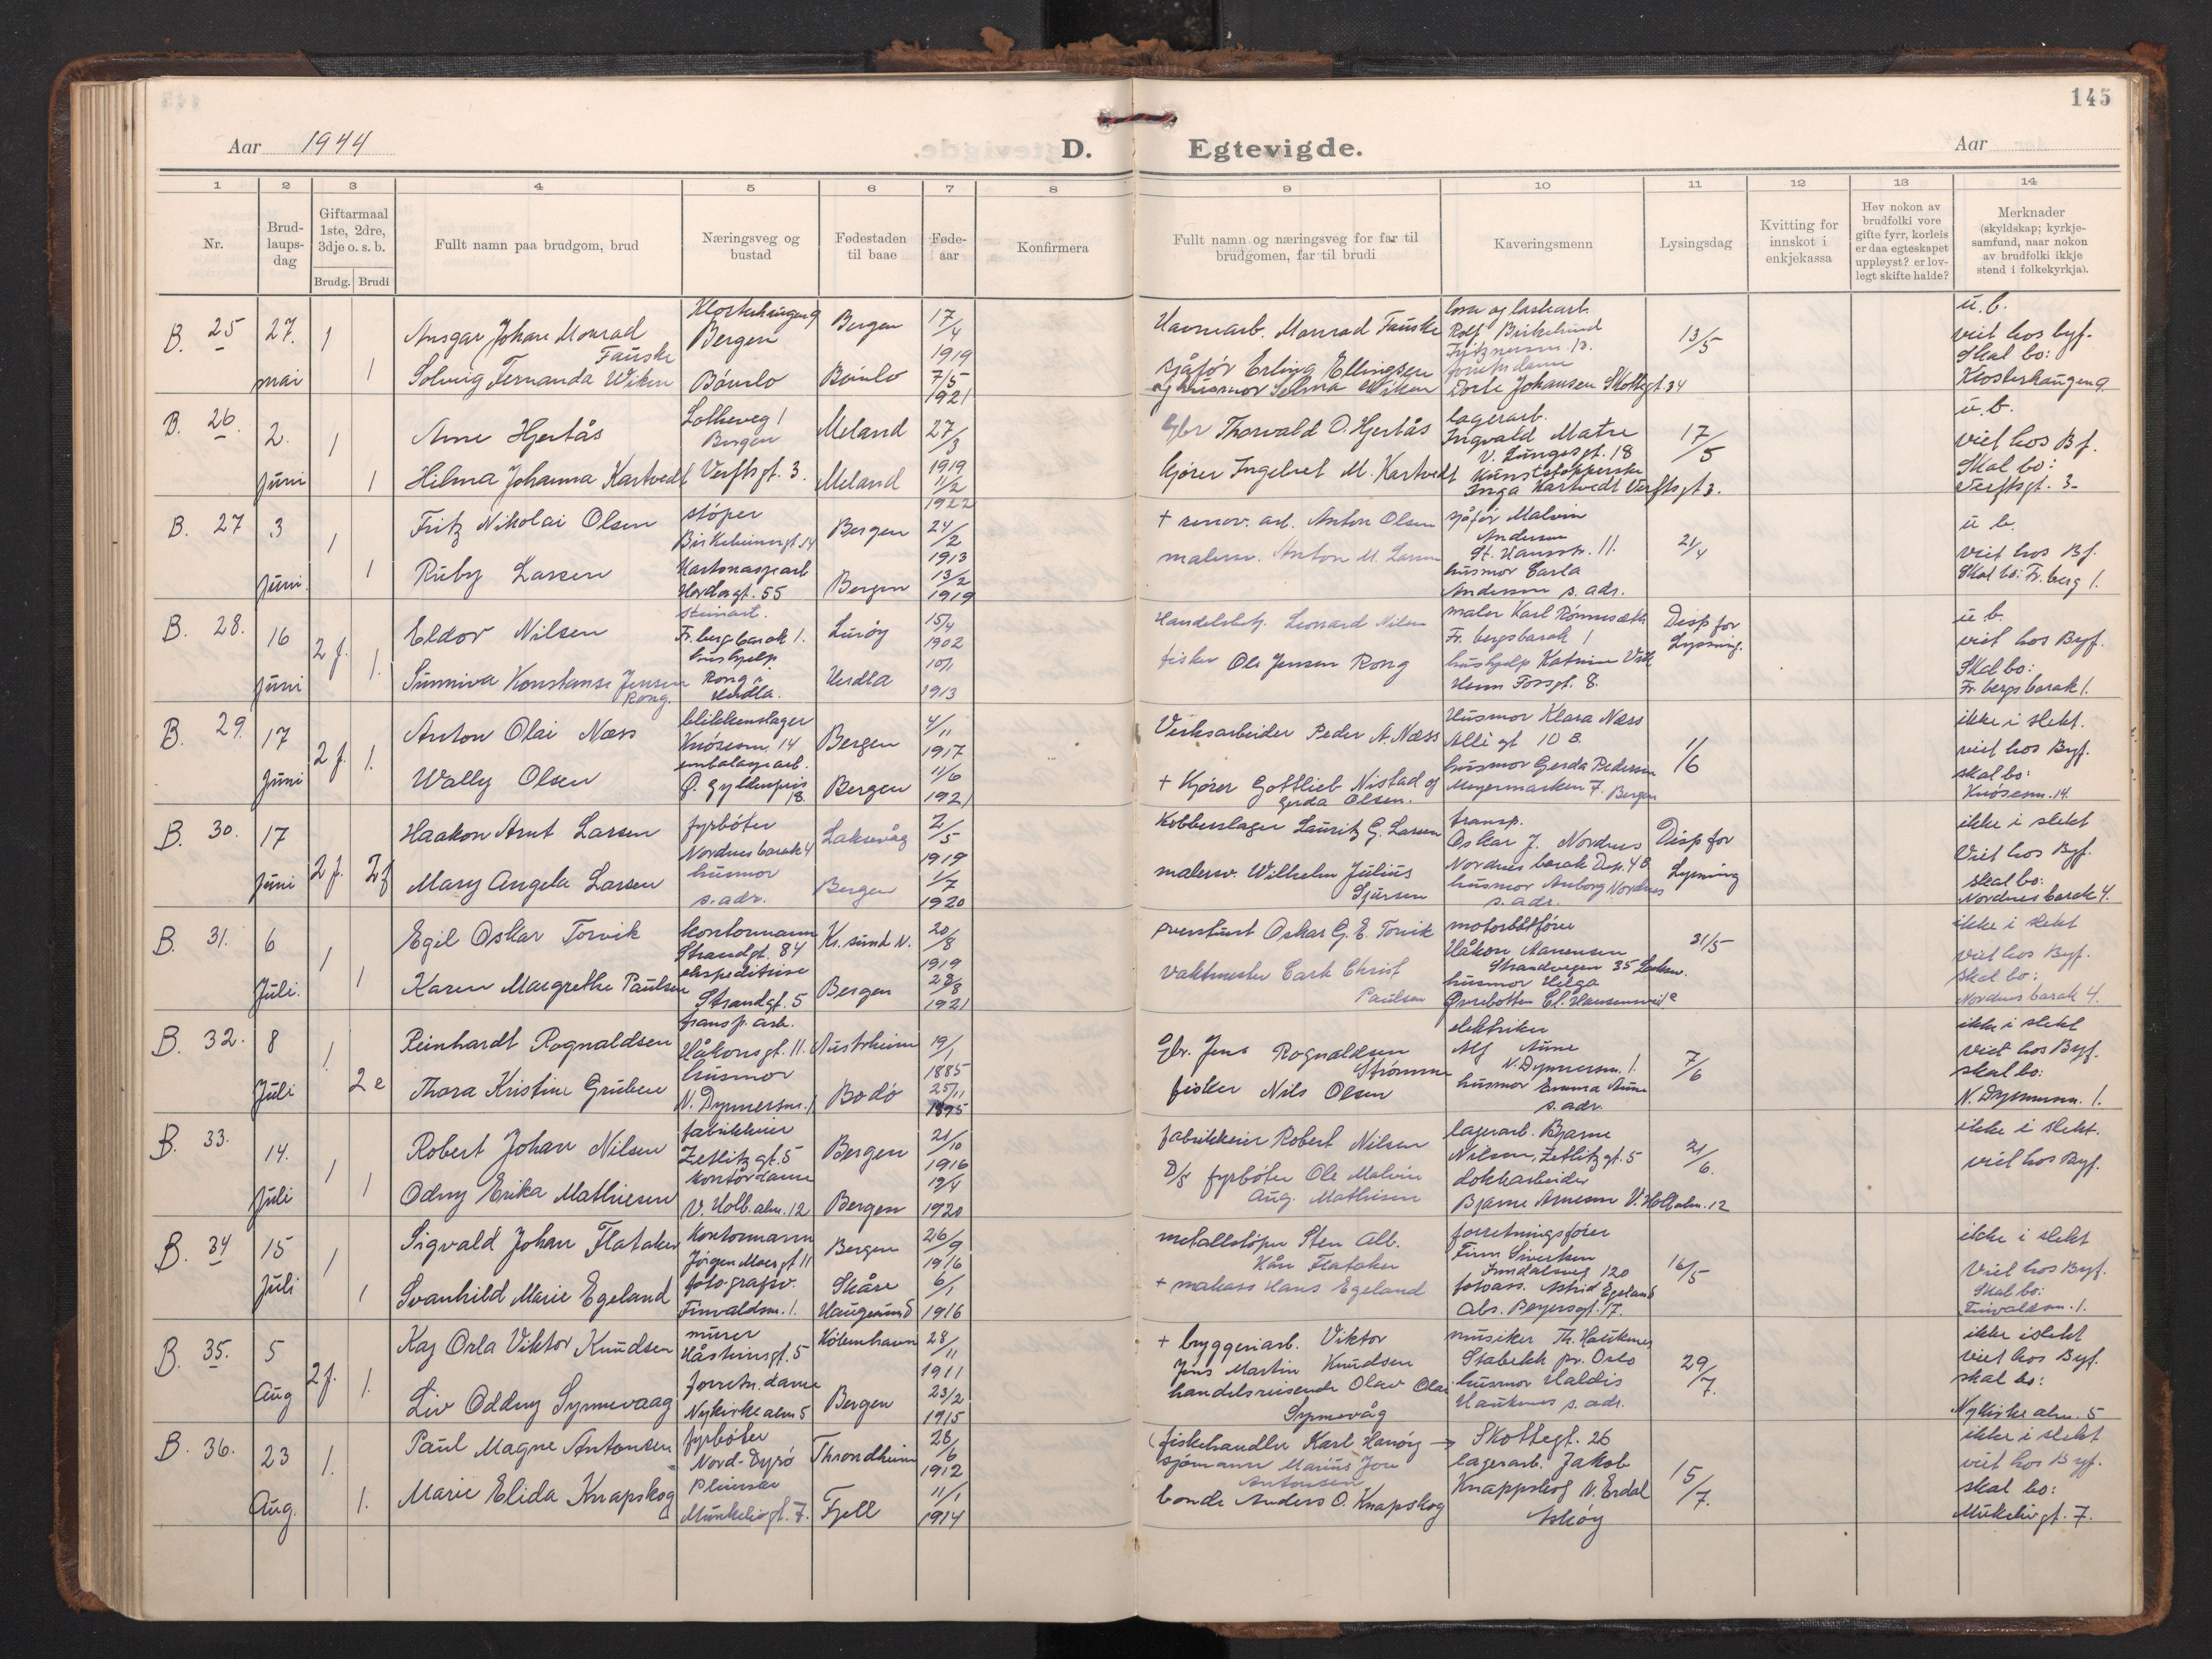 145
Aar 1944
D. Egtevigde.
Aar
1 2 3 4 5 6 7 8 9 10 11 12 13 14
Nr.
Brud-
laups-
dag
Giftarmaal
1ste, 2dre,
3dje o. s. b.
Brudg. Brudi
Fullt namn paa brudgom, brud
Næringsveg og
bustad
Fødestaden
til baae
Føde-
aar
Konfirmera
Fullt namn og næringsveg for far til
brudgomen, far til brudi
Kaveringsmenn
Lysingsdag
Kvitting for
innskot i
enkjekassa
Hev nokon av
brudfolki vore
gifte fyrr, korleis
er daa egteskapet
uppløyst? er lov-
legt skifte halde?
Merknader
(skyldskap; kyrkje-
samfund, naar nokon
av brudfolki ikkje
stend i folkekyrkja).
B. 25 27. mai 1 1
Ansgar Johan Monrad
Fauske
Klosterhaugen 9
Bergen
Bergen
17/4
1919
Havnearb. Monrad Fauske
Rolf Birkelund
13/5
u. b.
viet hos byf.
Skal bo:
Klosterhaugen 9.
Solveig Fernanda Wiken
Bömlo
Bömlo
7/5
1921
sjåfør Erling Ellingsen
og husmor Selma Wiken
Dorle Johansen Skottegt. 34
B. 26. 2. Juni 1 1
Arne Hjertås
Lotheveg 1
Bergen
Meland
27/3
1919
Gbr Thorvald O. Hjertås
lagerarb.
Ingvald Matre
V. Lungegt. 18
17/5
u. b.
viet hos Bf.
Skal bo:
Verftsgt. 3.
Hilma Johanna Kartvedt
Verftsgt. 3.
Meland
11/2
1922
kjører Ingebret M. Kartvedt
kunststopperske
Inga Kartvedt Verftsgt 3.
B. 27 3 Juni. 1 1
Fritz Nikolai Olsen
støper
Birkebeinergt. 14
Bergen
24/2
1913
+ renov. arb. Anton Olsen
sjåfør Malvin
Andersen
St. Hansstr. 11.
21/4
u. b.
viet hos Bf.
Skal bo: Fr. berg 1.
Ruby Larsen
Kartonasjearb
Hordagt. 55
Bergen
13/2
1919
malersv. Anton M. Larsen
husmor Carla
Andersen s. adr.
B. 28. 16 Juni 2 f. 1.
Eldor Nilsen
Fr. berg barak 1.
Lurøy
15/4
1902
Handelsbetj. Leonard Nilsen
maler Karl Rønnesæth
Fr. bergsbarak 1
Disp for
Lysning.
u. b.
viet hos Byf.
Skal bo:
Fr. bergs barak 1.
Sunniva Konstanse Jensen
Rong.
hushjelp
Rong i
Herdla.
Herdla
10/1
1913
fisker Ole Jensen Rong
hushjelp Katrine Vik
Herm Fossgt. 8.
B. 29. 17 Juni 2 f. 1.
Anton Olai Næss
blikkenslager
Knøsesm. 14
Bergen
4/11
1917
Verksarbeider Peder A. Næss
Husmor Klara Næss
Allégt 10 B.
1/6
ikke i slekt.
viet hos Byf.
skal bo:
Knøsesm. 14.
Wally Olsen
embalagearb.
Ø. Gyldenpris
18.
Bergen
11/6
1921
+ Kjører Gottlieb Nistad og
Gerda Olsen.
husmor Gerda Pedersen
Meyermarken 7. Bergen
B. 30. 17 Juni 2 f. 2 f
Haakon Arnt Larsen
fyrböter
Nordnes barak 4
Laksevåg
2/5
1919
Kobberslager Lauritz G. Larsen
transp.
Oskar J. Nordnes
Nordnes barak Dep. 4 B
Disp for
Lysning
ikke i slekt
Viet hos Byf.
skal bo:
Nordnes barak 4.
Mary Angela Larsen
husmor
s. adr.
Bergen
1/7
1920
malersv. Wilhelm Julius
Sjursen
husmor Anborg Nordnes
s. adr.
B. 31. 6 Juli. 1 1
Egil Oskar Torvik
kontormann
Strandgt. 84
Kr. sund N.
20/8
1919
overstuert Oskar G. E. Torvik
motorbåtfører
Håkon Aanensen
Strandvegen 35 Laksev.
31/5
ikke i slekt
viet hos Byf.
Skal bo:
Nordnes barak 4.
Karen Margrethe Paulsen
ekspeditrise
Strandgt. 5
Bergen
28/8
1921
vaktmester Carl Christ
Paulsen
husmor Helga
Øvrebotten
B. 32. 8 Juli 1. 2 e
Reinhardt Rognaldsen
transp. arb.
Håkonsgt. 11.
Austrheim
19/1
1885
Gbr. Jens Rognaldsen
Strømme
elektriker
Alf Aune
N. Dynnersm. 1.
7/6
ikke i slekt
viet hos Byf.
skal bo:
N. Dynnersm. 1.
Thora Kristine Gruben
husmor
N. Dynnersm. 1
Bodö
25/11
1895
fisker Nils Olsen
husmor Emma Aune
s. adr.
B. 33. 14. Juli 1 1
Robert Johan Nilsen
fabrikkeier
Zetlitzgt. 5
Bergen
21/10
1916
fabrikkeier Robert Nilsen
lagerarb. Bjarne
Nilsen, Zetlitzgt. 5
21/6.
ikke i slekt.
viet hos Byf.
Odny Erika Mathiesen
kontordame
V. Holb. alm. 12
Bergen
12/4
1920
D/S fyrböter Ole Malvin
Aug. Mathiesen
dokkarbeider
Bjarne Arnesen V. Holb alm. 12
B. 34 15 Juli 1 1
Sigvald Johan Flataker
kontormann
Jörgen Moes gt 11
Bergen
26/9
1916
metallstöper Sten Alb.
Kåre Flataker
forretningsfører
Finn Sivertsen
120
16/5
ikke i slekt
Viet hos Byf.
Skal bo:
Finvaldsm. 1.
Svanhild Marie Egeland
fotografsv.
Finvaldsm. 1.
Skåre
Haugesund
6/1
1916
+ Hans Egeland
fotoass. Astrid Egeland
Abs. Beyersgt. 17.
B. 35. 5 Aug 2 f. 1.
Kaj Orla Viktor Knudsen
murer
Håsteinsgt. 5
København
28/11
1911
+ bryggeriarb. Viktor
Jens Martin Knudsen
musiker Th. Hauknes
Stabekk pr. Oslo
29/7.
ikke i slekt
viet hos Byf.
skal bo:
Nykirke alm. 5
Liv Oddny Synnevaag
forretn. dame
Nykirkealm 5
Bergen
23/2
1915
handelsreisende Olav Olai
Synnevåg
husmor Haldis
Hauknes s. adr.
B. 36. 23 Aug. 1. 1.
Paul Magne Antonsen
fyrböter
Nord-Dyrö
Throndheim
28/6
1912
(fiskehandler Karl Harøy → Skottegt. 26
sjømann Marius Jon
Antonsen
lagerarb. Jakob
Knappskog N. Erdal
Askøy
15/7.
ikke i slekt
viet hos Byf.
skal bo:
Munkelivgt. 7.
Marie Elida Knapskog
Pleierske
Munkelivgt. 7.
Fjell
11/1
1914
bonde Anders O. Knapskog